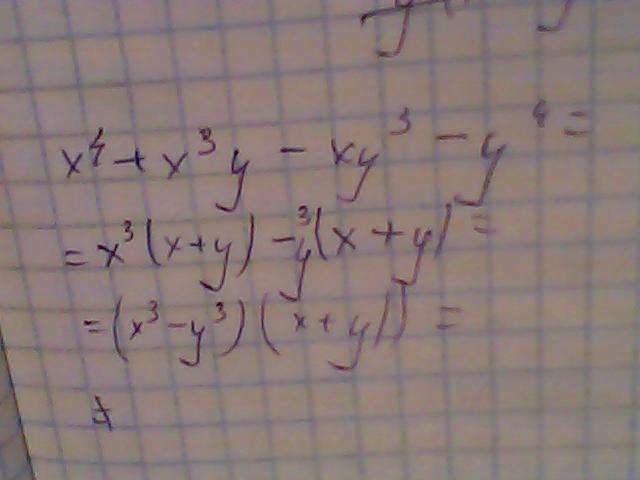 x⁴ + x³y - xy³ - y⁴ =
= x³(x+y) - y³(x+y) =
= (x³ - y³)(x+y)) =